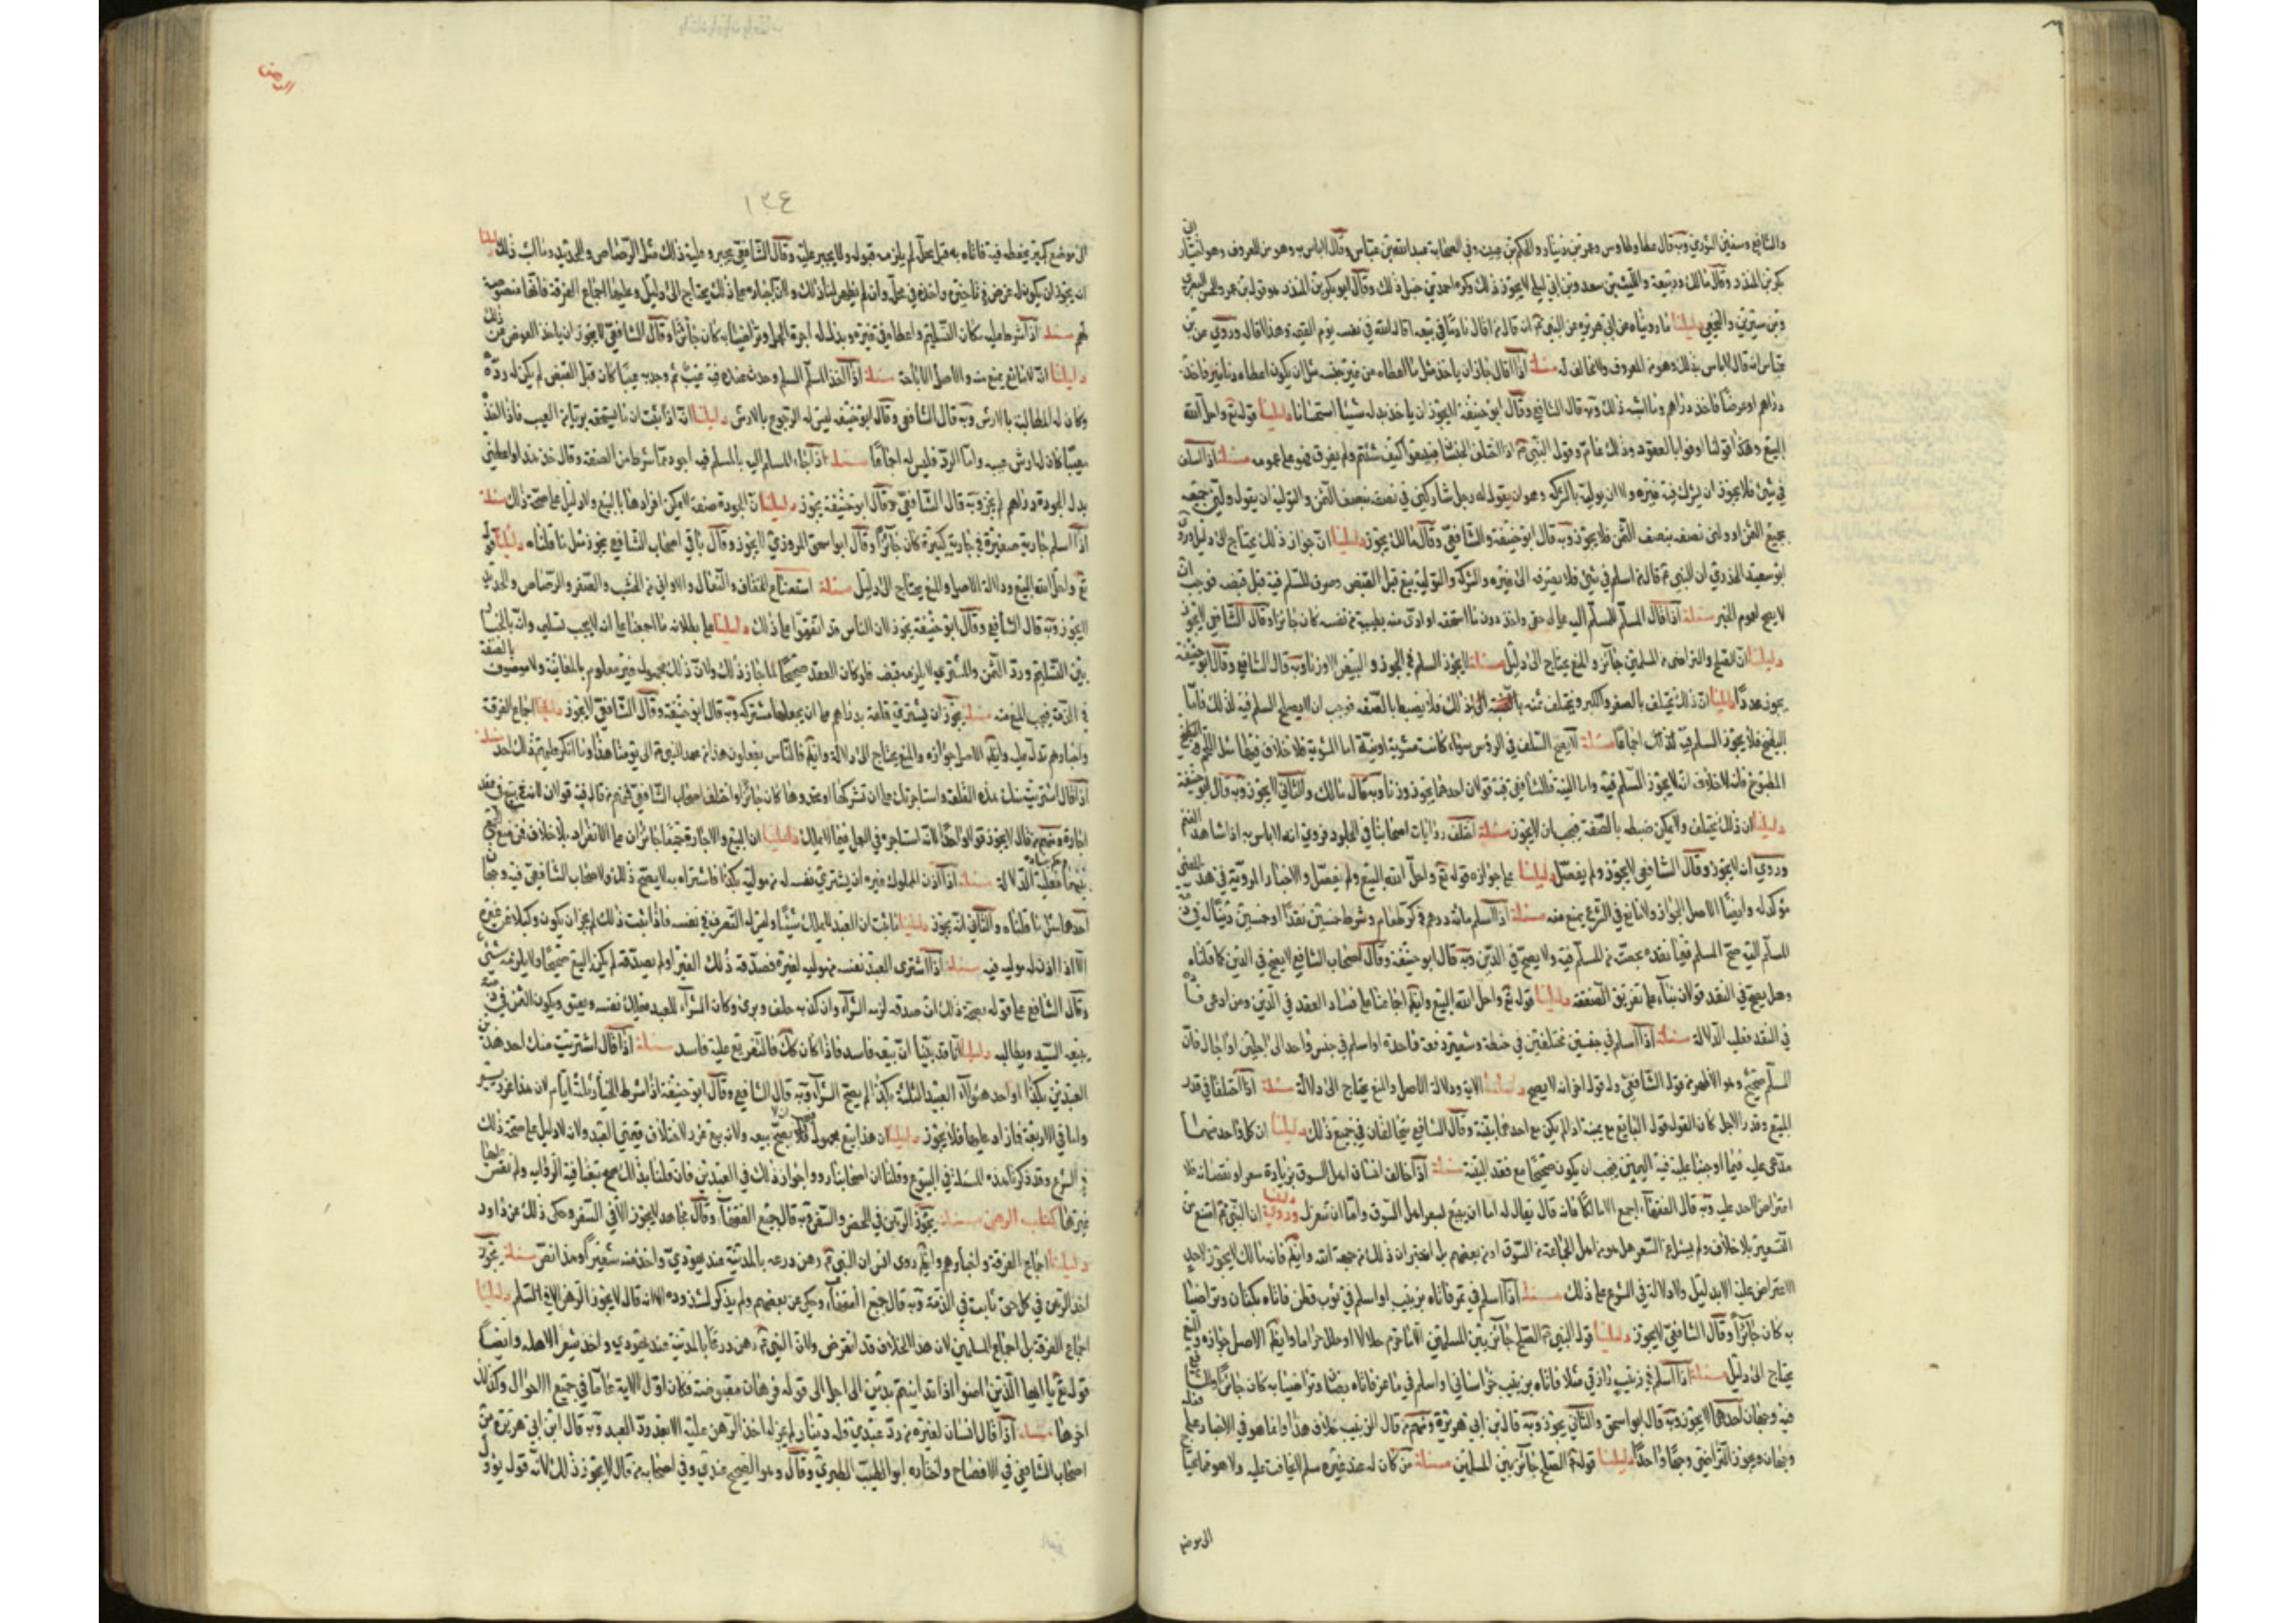 والشافعي وسفين الثوري وبه قال عطا وطاوس وعمرو بن دينار والحكم بن عيينه وفي الصحابة عبد الله بن عباس وقال لا باس به وهو من المعروف وهو اختيار ابي
بكر بن المنذر وقال مالك وربيعة والليث بن سعد وبن ابي ليلى لا يجوز ذلك وكره احمد بن حنبل ذلك وقال ابو بكر بن المنذر هو قول بن عمر والحسن البصري
وبن سيرين والنخعي دليلنا ما رويناه عن ابي هريره عن النبي انه قال من اقال نادما في بيعه اقاله الله في نفسه يوم القيمة وهذا اقال وروي عن بن
عباس انه قال لا باس بذلك وهو من المعروف ولا مخالف له مسئلة اذا اقال جاز ان ياخذ مثل ما اعطاه من غير جنسه مثل ان يكون اعطاه دنانير فاخذ
دراهم او عرضا فاخذ دراهم وما اشبه ذلك وبه قال الشافعي وقال ابو حنيفة لا يجوز ان ياخذ بدله شيئا استحسانا دليلنا قوله تع واحل الله
البيع وهكذا قولنا اوفوا بالعقود وذلك عام وقول النبي اذا اختلف الجنسان فبيعوا كيف شئتم ولم يفرق فهو على عمومه مسئلة اذا اسلف
في شئ فلا يجوز ان يشرك فيه غيره ولا ان يوليه بالشركه وهو ان يقول له رجل شاركني في نصفه بنصف الثمن والتولية ان يقول ولني جميعه
بجميع الثمن او ولني نصفه بنصف الثمن فلا يجوز وبه قال ابو حنيفة والشافعي وقال مالك يجوز دليلنا ان جواز ذلك يحتاج الى دليل وروى
ابو سعيد الخدري ان النبي قال من اسلم في شئ فلا يصرفه الى غيره والشركه والتولية بيع قبل القبض وصرف للمسلم فيه قبل قبضه فوجب ان
لا يصح لعموم الخبر مسئلة اذا قال المسلم للمسلم اليه عجل لي حقي واخذ دون ما استحقه او ادى منه بطيبة من نفسه كان جائزا وقال الشافعي لا يجوز
دليلنا ان الصلح والتراضي من المسلمين جائز والمنع يحتاج الى دليل مسئلة لا يجوز السلم في الجوز والبيض الا وزنا وبه قال الشافعي وقال ابو حنيفة
يجوز عددا دليلنا ان ذلك يختلف بالصغر والكبر ويختلف ثمنه فلا يضبط بالصفة فوجب ان لا يصح السلم فيه لذلك فاما
البطيخ فلا يجوز السلم فيه كذلك اجماعا مسئلة لا يصح السلف في الرؤس سواء كانت مشوية او نيئة اما المشوية فلا خلاف فيها مثل اللحم
المطبوخ فانه لا خلاف انه لا يجوز السلم فيه واما النيئة فللشافعي فيه قولان احدهما يجوز وزنا وبه قال مالك والثاني لا يجوز وبه قال ابو حنيفة
دليلنا ان ذلك يختلف ولا يمكن ضبطه بالصفة فيجب ان لا يجوز مسئلة اختلف روايات اصحابنا في الجلود فروي انه لا باس به اذا شاهد الغنم
وروي انه لا يجوز وقال الشافعي لا يجوز ولم يفصل دليلنا على جوازه قوله تع واحل الله البيع ولم يفصل والاخبار المروية في هذا المعنى
مؤكدا له وايضا الاصل الجواز ولا مانع في الشرع يمنع منه مسئلة اذا اسلم مائة درهم في كر طعام وشرط خمسين نقدا وخمسين دينا له في ذمة
المسلم اليه صح السلم فيما نقده بحصته من المسلم فيه ولا يصح في الدين وبه قال ابو حنيفة وقال اصحاب الشافعي لا يصح في الدين كما قلناه
وهل يصح في النقد قولان بناء على تفريق الصفقة دليلنا قوله تع واحل الله البيع وايضا اجماعنا على فساد العقد في الدين ومن ادعى فساده
في النقد فعليه الدلالة مسئلة اذا اسلم في جنسين مختلفين في حنطة وشعير دفعة واحدة او اسلم في جنس واحد الى اجلين او اجال فان
السلم صحيح وهو الاظهر من قول الشافعي وله قول اخر انه لا يصح دليلنا الاية ودلالة الاصل والمنع يحتاج الى دلالة مسئلة اذا اختلفا في قدر
المبيع وقدر الاجل كان القول قول البايع مع يمينه اذا لم يكن مع احدهما بينة وقال الشافعي يتحالفان في جميع ذلك دليلنا ان كل واحد منهما
مدعى عليه فيما اوجبنا عليه فيه اليمين فيجب ان يكون صحيحا مع فقد البينة مسئلة اذا خالف انسان اهل السوق بزيادة سعر او نقصانه فلا
اعتراض لاحد عليه وبه قال الفقهاء اجمع الا مالكا فانه قال يقال له اما ان تبيع بسعر اهل السوق واما ان تنعزل دليلنا وروي ان النبي امتنع من
التسعير بلا خلاف
الاعتراض عليه الا بدليل ولا دلالة في الشرع على ذلك مسئلة اذا اسلم في تمر فاتاه بزبيب او اسلم في ثوب قطن فاتاه بكتان وتراضيا
به كان جائزا وقال الشافعي لا يجوز دليلنا قول النبي الصلح جائز بين المسلمين الا ما حرم حلالا او حلل حراما وايضا الاصل جوازه والمنع
يحتاج الى دليل مسئلة اذا اسلم في زبيب رازقي مثلا فاتاه بزبيب خراساني او اسلم في ماعز فاتاه بضان وتراضيا به كان جائزا وللشافعي
فيه وجهان احدهما لا يجوز وبه قال ابو اسحق والثاني يجوز وبه قال بن ابي هريرة ومنهم من قال
دليلنا قوله الصلح جائز بين المسلمين مسئلة من كان له عند غيره سلم
الى موضع
١٣٤
الى موضع كبير يحفظه فيه فاتاه به قبل محله لم يلزمه قبوله ولا يجبر عليه وقال الشافعي يجبر عليه ذلك مثل الرصاص والحديد وما اشبه ذلك دليلنا
انه يجوز ان يكون له غرض في تاخيره واخذه في محله وان لم يظهر لنا ذلك ولان اجباره على ذلك يحتاج الى دليل وعليها اجماع الفرقة فانها منصوصة
لهم مسئلة اذا شرط عليه مكان التسليم واعطاه في غيره وبذل له اجرة الحمل وتراضيا به كان جائزا وقال الشافعي لا يجوز ان ياخذ العوض من ذلك
دليلنا انه لا مانع يمنع منه والاصل الاباحة مسئلة اذا اخذ المسلم السلم وحدث عنده فيه عيب ثم وجد به عيبا كان قبل القبض لم يكن له رده
وكان له المطالبة بالارش وبه قال الشافعي وقال ابو حنيفه ليس له الرجوع بالارش دليلنا انه اذا ثبت ان ما يستحقه بريا من العيب فاذا اخذه
معيبا كان له ارش عيبه واما الرد فليس له اجماعا مسئلة اذا جاء المسلم اليه بالمسلم فيه اجود مما شرط من الصفة وقال خذ هذا واعطني
بدل الجودة دراهم لم يجز وبه قال الشافعي وقال ابو حنيفة يجوز دليلنا ان الجودة صفة لا يمكن افرادها بالبيع ولا دليل على صحة ذلك مسئلة
اذا اسلم جارية صغيرة في جارية كبيرة كان جائزا وقال ابو اسحق المروزي لا يجوز وقال باقي اصحاب الشافعي يجوز مثل ما قلناه دليلنا قوله
تع واحل الله البيع ودلالة الاصل والمنع يحتاج الى دليل مسئلة استصناع الخفاف والنعال والاواني من الخشب والصفر والرصاص والحديد
لا يجوز وبه قال الشافعي وقال ابو حنيفة يجوز لان الناس قد اتفقوا على ذلك دليلنا على بطلانه انا اجمعنا على انه لا يجب تسليمه وانه بالخيار
بين التسليم ورد الثمن والمشتري لا يلزمه قبضه فلو كان العقد صحيحا لما جاز ذلك ولان ذلك مجهول غير معلوم بالمعاينة ولا موصوف بالصفة
في الذمة فيجب المنع منه مسئلة يجوز ان يشتري قلعة بدراهم على ان يجعلها مشركه وبه قال ابو حنيفة وقال الشافعي لا يجوز دليلنا اجماع الفرقة
واخبارهم تدل عليه وايضا الاصل جوازه والمنع يحتاج الى دلالة وايضا فالناس يفعلون هذا من عهد النبي الى يومنا هذا وما انكر عليهم ذلك احد مسئلة
اذا قال اشتريت منك هذه القلعة واستاجرتك على ان تشركها او تحذوها كان جائزا واختلف اصحاب الشافعي فمنهم من قال فيه قولان لانه بيع في عقد
اجارة ومنهم من قال لا يجوز قولا واحدا لانه استاجره في العمل فيما لا يملك دليلنا ان البيع والاجارة جميعا جائزان على الانفراد بلا خلاف فمن منع الجمع
بينهما فعليه الدلالة مسئلة اذا اذن المملوك غيره ان يشتري نفسه له من مولاه بكذا فاشتراه به لا يصح ذلك ولاصحاب الشافعي فيه وجهان
احدهما مثل ما قلناه والثاني انه يجوز دليلنا ما ثبت ان العبد لا يملك شيئا وليس له التصرف في نفسه فاذا ثبت ذلك لم يجز ان يكون وكيلا عن غيره
الا اذا اذن له مولاه فيه مسئلة اذا اشترى العبد نفسه من مولاه لغيره فصدقه ذلك الغير او لم يصدقه لم يكن البيع صحيحا ولا يلزمه شئ
وقال الشافعي على قوله بصحة ذلك ان صدقه لزمه الشراء وان كذبه حلف وبرئ وكان الشراء للعبد فيملك نفسه ويعتق ويكون الثمن في ذمته
يتبعه السيد ويطالبه دليلنا انا قد بينا ان بيعه فاسد فاذا كان كك فالتفريع عليه فاسد مسئلة اذا قال اشتريت منك احد هذين
العبدين بكذا او احد هؤلاء العبيد الثلثة بكذا لم يصح الشراء وبه قال الشافعي وقال ابو حنيفة اذا شرط الخيار ثلثة ايام
واما في الاربعة فما زاد عليها فلا يجوز دليلنا ان هذا بيع مجهول فلا يصح بيعه ولانه بيع غرر لاختلاف قيمتي العبدين ولانه لا دليل على صحة ذلك
في الشرع وقد ذكرنا هذه المسئلة في البيوع وقلنا ان اصحابنا رووا جواز ذلك في العبدين فان قلنا بذلك تبعنا فيه الرواية ولم نقس عليها
غيرها كتاب الرهن مسئلة يجوز الرهن في الحضر والسفر وبه قال جميع الفقهاء وقال مجاهد لا يجوز الا في السفر وحكى ذلك عن داود
دليلنا اجماع الفرقة واخبارهم وايضا روى انس ان النبي رهن درعه بالمدينة عند يهودي واخذ منه شعيرا وهذا نص مسئلة يجوز
اخذ الرهن في كل حق ثابت في الذمة وبه قال جميع الفقهاء وحكي عن بعضهم ولم يذكر لشذوذه الا انه قال لا يجوز الرهن الا في السلم دليلنا
اجماع الفرقة بل اجماع المسلمين لان هذا الخلاف قد انقرض ولان النبي رهن درعا بالمدينة عند يهودي واخذ شعيرا لاهله وايضا
قوله تع يا ايها الذين امنوا اذا تداينتم بدين الى اجل الى قوله فرهان مقبوضة فكان اول الاية عاما في جميع الاحوال وكذلك
اخرها مسئلة اذا قال انسان لغيره من رد عبدي فله دينار لم يجز له اخذ الرهن عليه الا بعد رد العبد وبه قال ابن ابي هريرة من
اصحاب الشافعي في الافصاح واختاره ابو الطيب الطبري وقال وهو الصحيح عندي وفي اصحابه من قال لا يجوز ذلك لانه قول يؤول